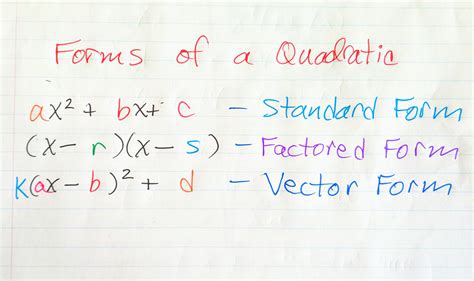 Forms of a Quadratic
ax² + bx + c - Standard Form
(x - r)(x - s) - Factored Form
K(ax - b)² + d - Vector Form